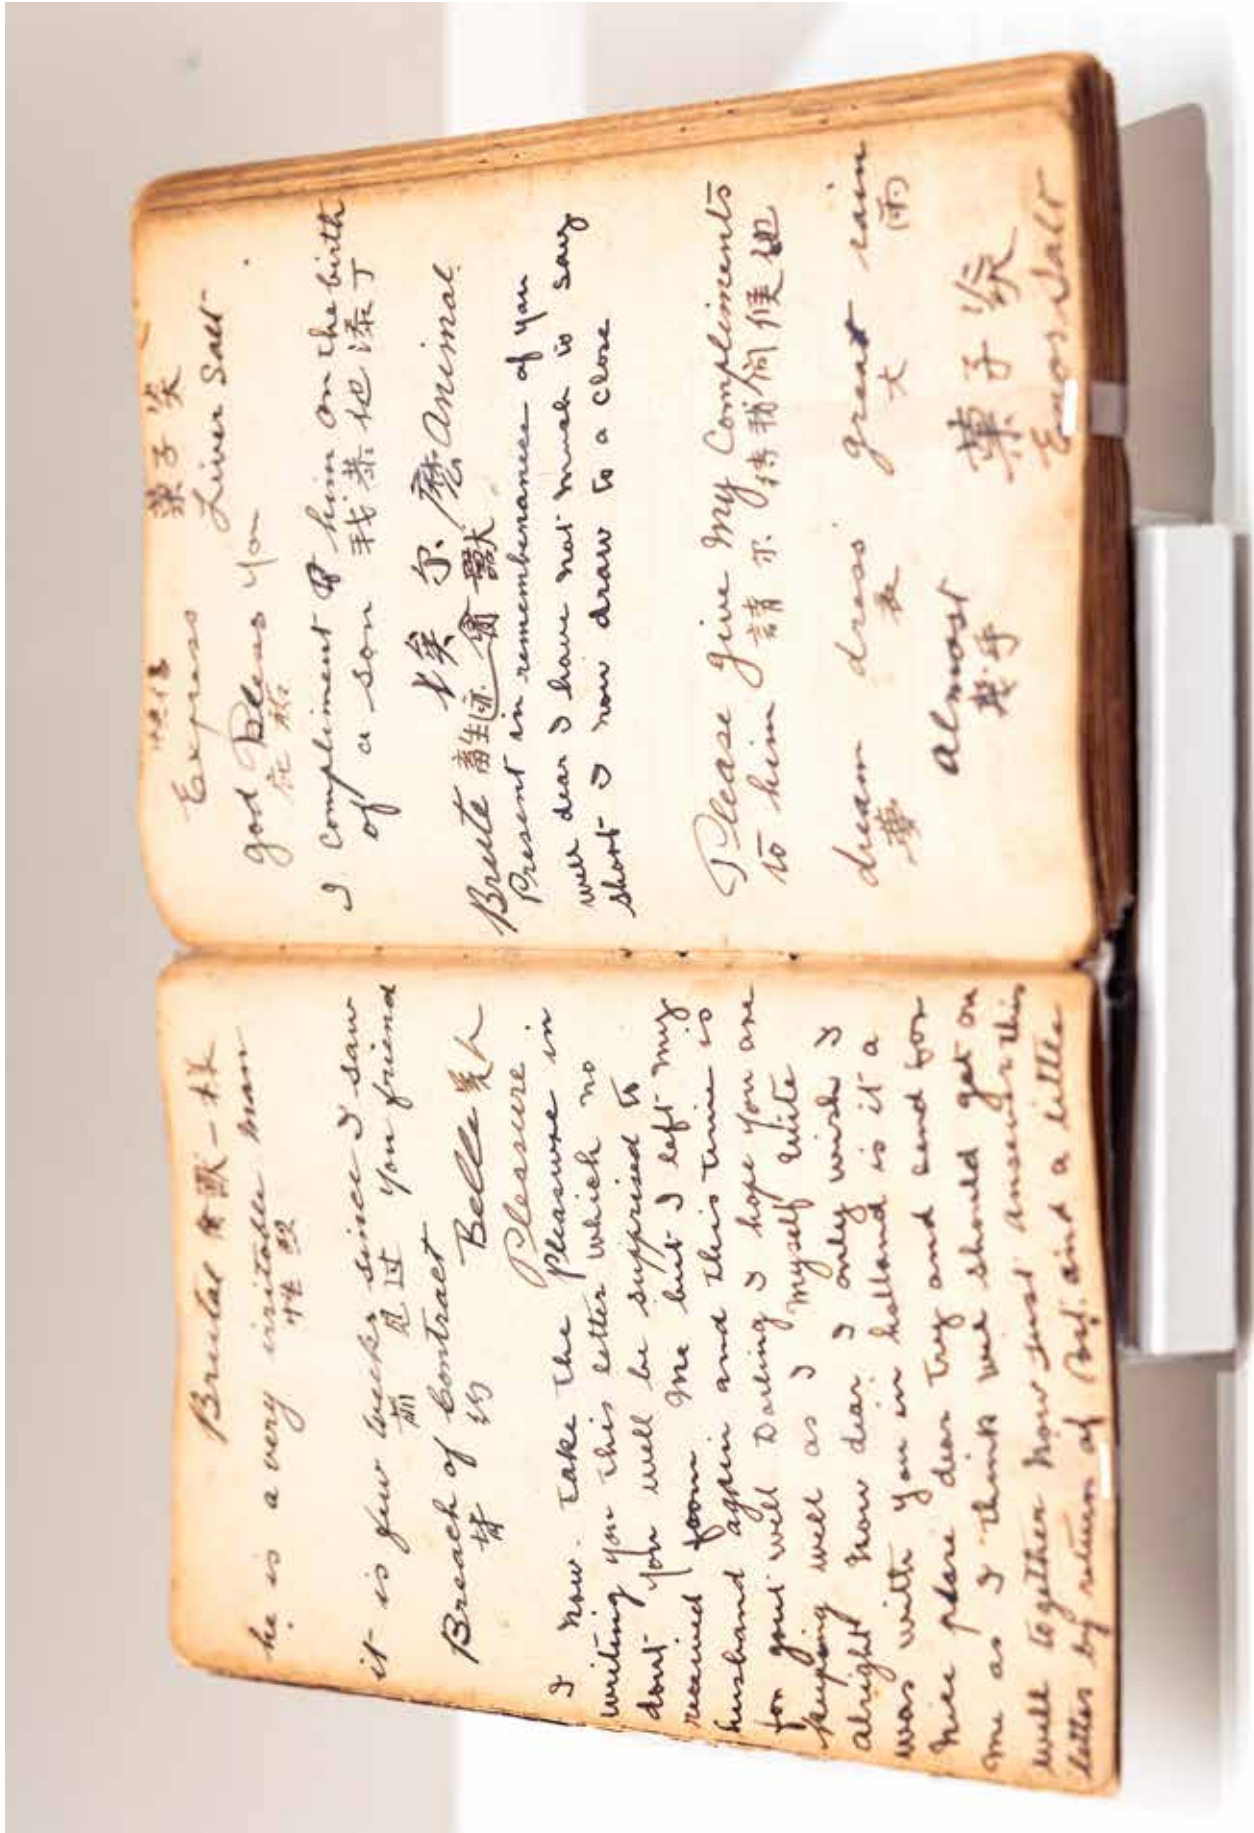 Brutal 禽獸一样
he is a very irritable man
性烈
it is few weeks since I saw
前 見过 you friend
Breach of Contract
背 约
Belle 美人
Pleasure
I now take the Pleasure in
writing you this letter which no
dont you will be supprised to
received from me but I left my
husband again and this time is
for good well Darling I hope you are
keeping well as I myself quite
alright now dear I only wish I
was with you in holland is it a
nice place dear try and send for
me as I think we should get on
well together now just answer this
letter by return of Post and a little
菓子
Express Liver Salt
god Bless you
I compliment of him on the birth
of a son 我恭他添丁
埃尔 Animal
Brute 畜生 禽獸
Present in rememberance of you
well dear I have not much to say
short I now draw to a close
Please give My Compliments
to him 請尔待我问候他
dream dress great rain
夢 衣 大 雨
Almost
幾乎
菓子
Enos Salt